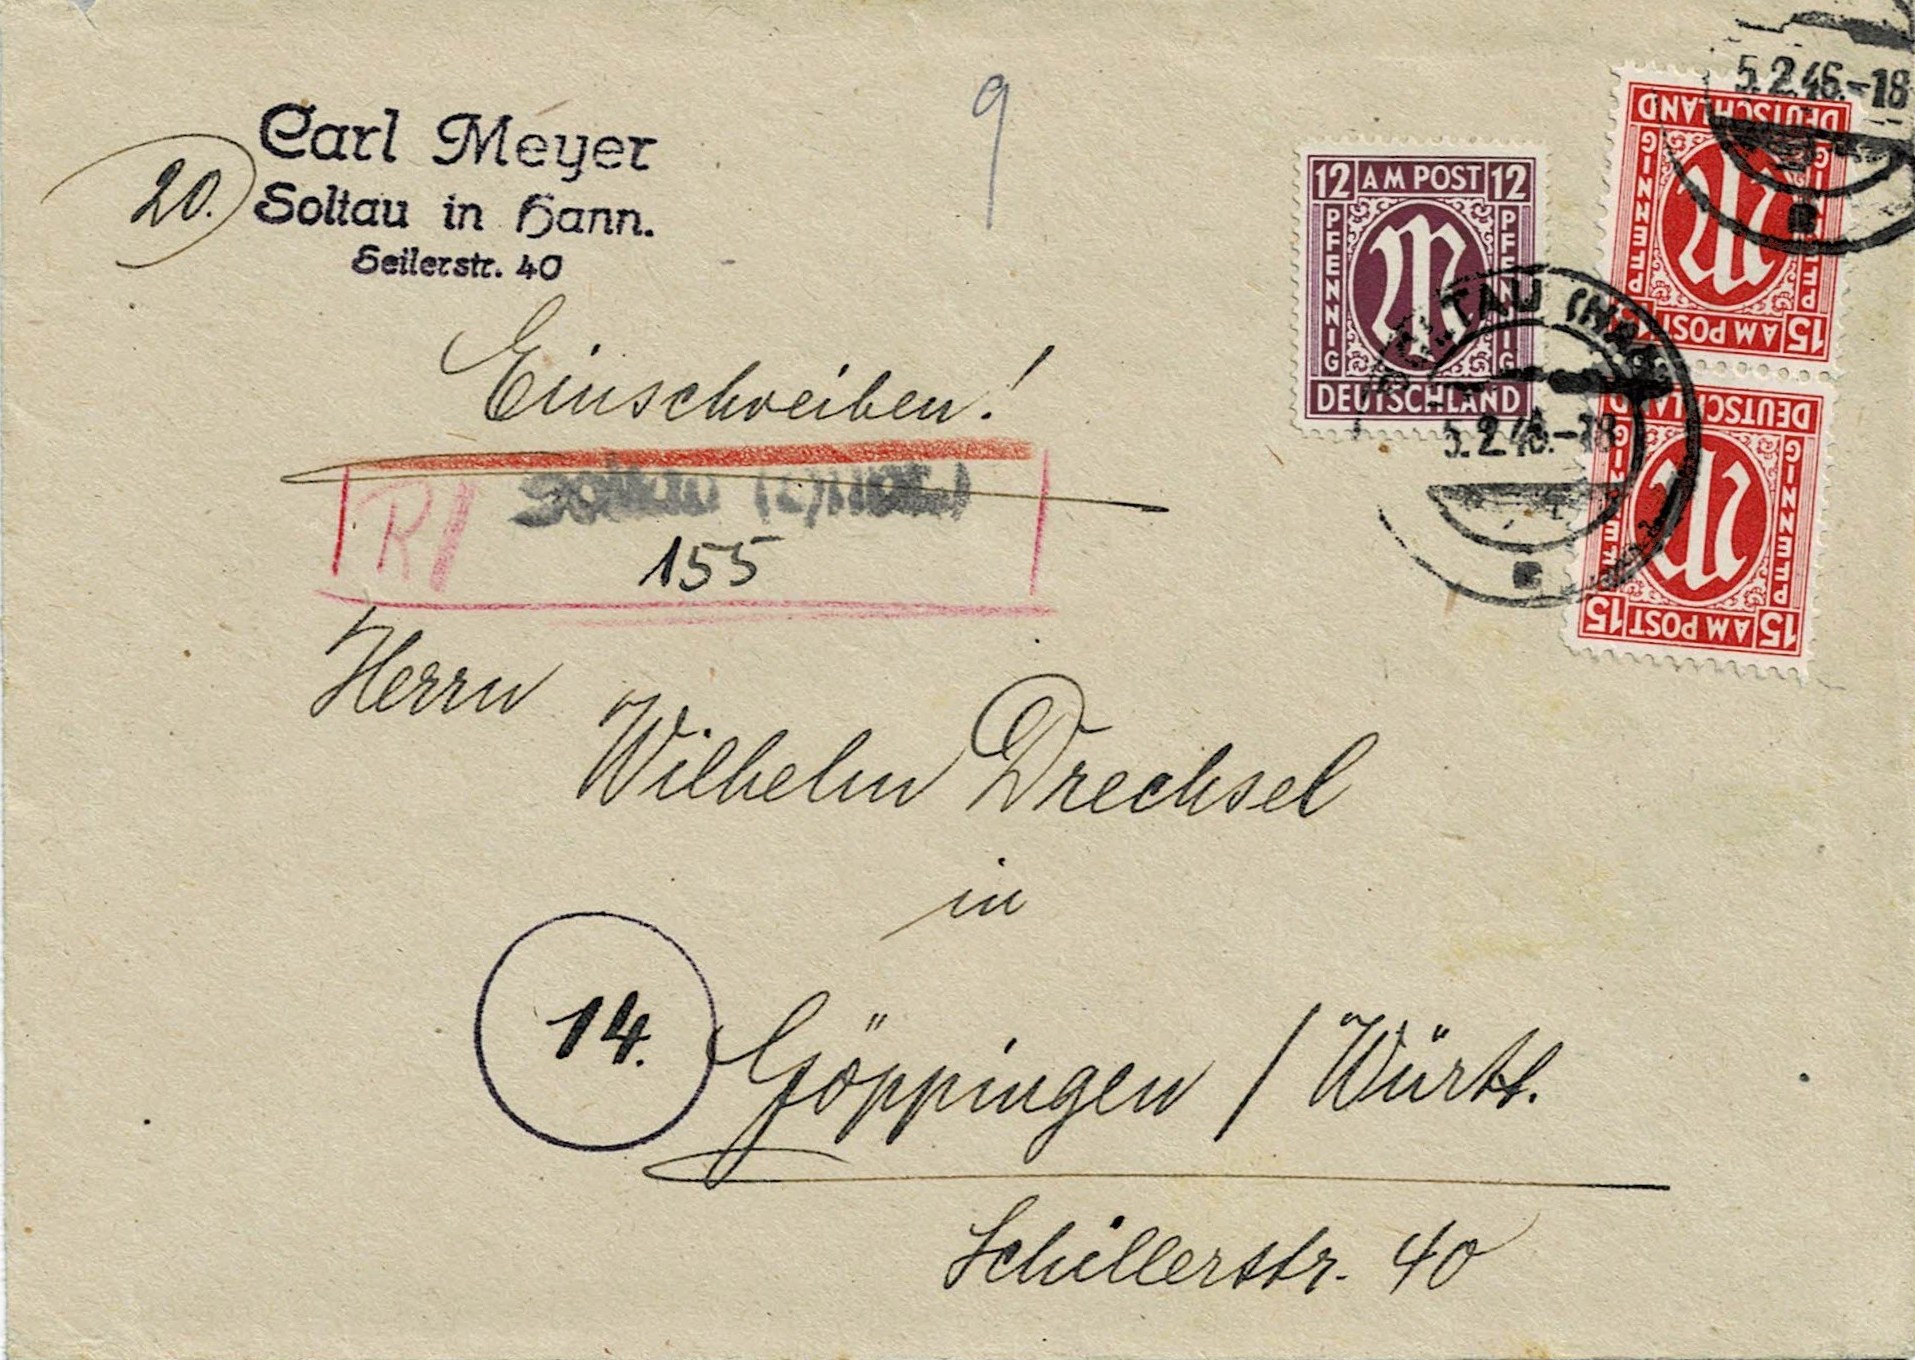 Carl Meyer
20. Soltau in Hann.
Seilerstr. 40
9
Einschreiben!
R Soltau
155
Herrn
Wilhelm Drechsel
in
14. Göppingen / Württ.
Schillerstr. 40
12 AM POST 12
PFENNIG PFENNIG
DEUTSCHLAND
15 AM POST
PFENNIG PFENNIG
DEUTSCHLAND
15 AM POST 15
PFENNIG PFENNIG
DEUTSCHLAND
5.2.46.-18
SOLTAU (HAN
5.2.46.-18